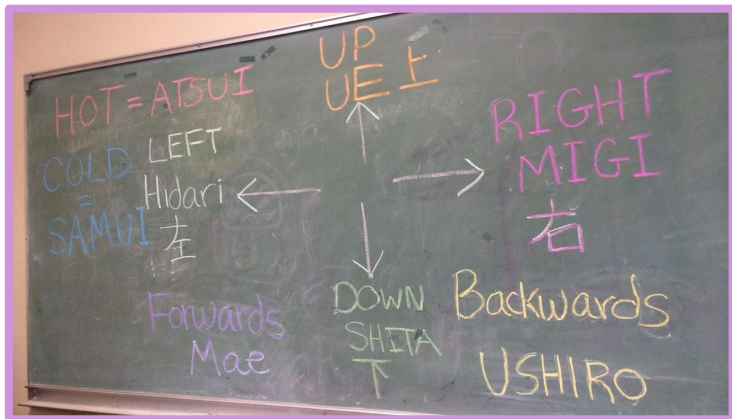 HOT = ATSUI
COLD
=
SAMUI
UP
UE 上
LEFT
Hidari
左
RIGHT
MIGI
右
Forwards
Mae
DOWN
SHITA
下
Backwards
USHIRO